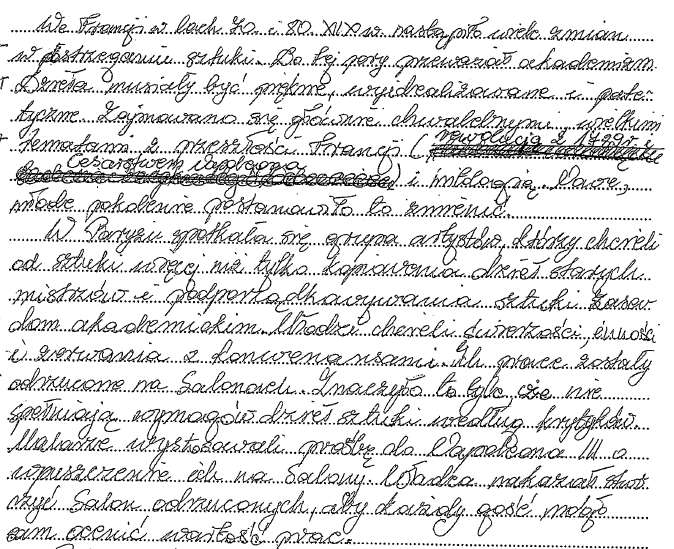 We Francji w lach 70. i 80. XIX w nastąpiło wiele zmian
w postrzeganiu sztuki. Do tej pory przeważał akademizm.
Dzieła musiały być piękne, wyidealizowane i pate-
tyczne. Zajmowano się głównie chwalebnymi, wielkimi
tematami z przeszłości Francji (rewolucją z 1789r. i
Cesarstwem Napoleona) i mitologią. Nowe,
młode pokolenie postanowiło to zmienić.
W Paryżu spotkała się grupa artystów, którzy chcieli
od sztuki więcej niż tylko kopiowania dzieł starych
mistrzów i podporządkowywania sztuki zasa-
dom akademickim. Młodzi chcieli świeżości, inności
i zerwania z konwenansami. Ich prace zostały
odrzucone na Salonach. Znaczyło to tyle, że nie
spełniają wymagów dzieł sztuki według krytyków.
Malarze wystosowali prośbę do Napoleona III o
wpuszczenie ich na Salony. Władca nakazał stwo-
rzyć Salon odrzuconych, aby każdy gość mógł
sam ocenić wartość prac.